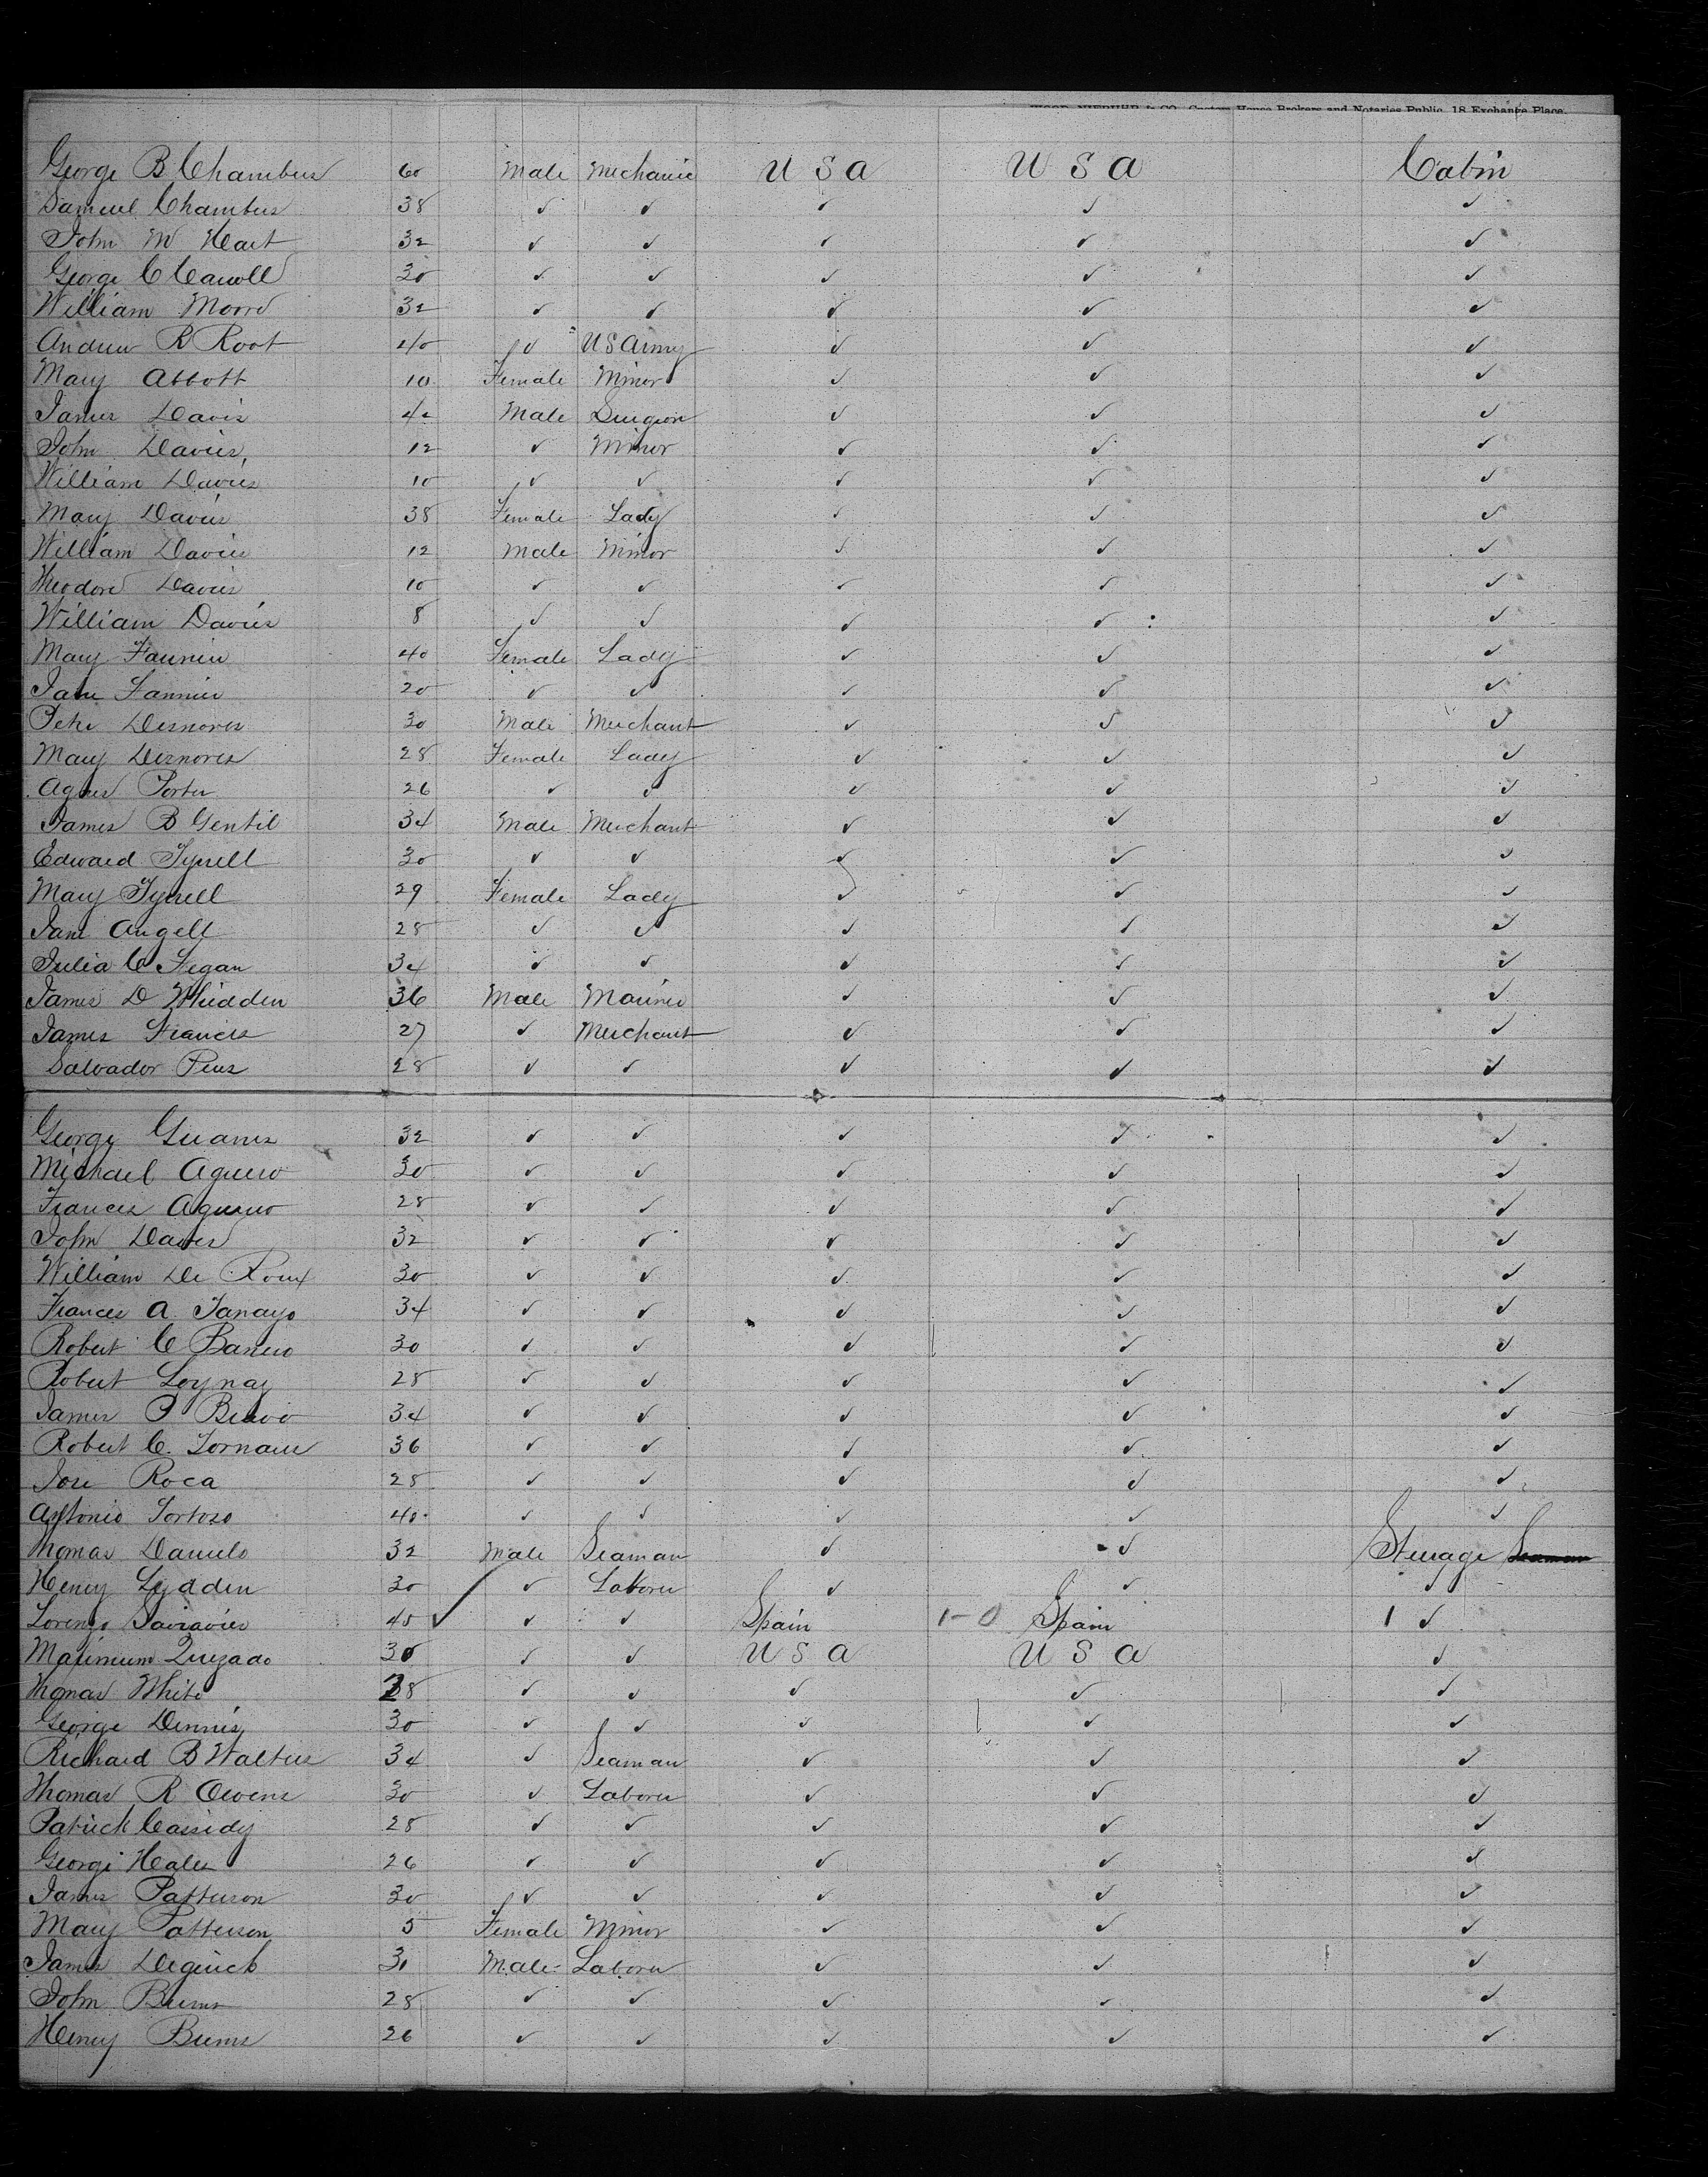 Custom House Brokers and Notaries Public, 18 Exchange Place.
George B Chambers 60 Male Mechanic U S A U S A Cabin
Samuel Chambers 38 ✓ ✓ ✓ ✓ ✓
John M Hart 32 ✓ ✓ ✓ ✓ ✓
George C Carroll 30 ✓ ✓ ✓ ✓ ✓
William Moore 32 ✓ ✓ ✓ ✓ ✓
Andrew R Root 40 ✓ U S Army ✓ ✓ ✓
Mary Abbott 10 Female Minor ✓ ✓ ✓
James Davis 42 Male Surgeon ✓ ✓ ✓
John Davies 12 ✓ Minor ✓ ✓ ✓
William Davies 10 ✓ ✓ ✓ ✓ ✓
Mary Davies 38 Female Lady ✓ ✓ ✓
William Davies 12 Male Minor ✓ ✓ ✓
Theodore Davies 10 ✓ ✓ ✓ ✓ ✓
William Davies 8 ✓ ✓ ✓ ✓ ✓
Mary Fannin 40 Female Lady ✓ ✓ ✓
Jane Fannin 20 ✓ ✓ ✓ ✓ ✓
Peter Desnoves 30 Male Merchant ✓ ✓ ✓
Mary Desnoves 28 Female Lady ✓ ✓ ✓
Agnes Porter 26 ✓ ✓ ✓ ✓ ✓
James B Gentil 34 Male Merchant ✓ ✓ ✓
Edward Tyrrell 30 ✓ ✓ ✓ ✓ ✓
Mary Tyrrell 29 Female Lady ✓ ✓ ✓
Jane Angell 28 ✓ ✓ ✓ ✓ ✓
Julia C Fegan 34 ✓ ✓ ✓ ✓ ✓
James D Whidden 36 Male Mariner ✓ ✓ ✓
James Francis 27 ✓ Merchant ✓ ✓ ✓
Salvador Pius 28 ✓ ✓ ✓ ✓ ✓
George Guanes 32 ✓ ✓ ✓ ✓ ✓
Michael Aguero 30 ✓ ✓ ✓ ✓ ✓
Frances Aguero 28 ✓ ✓ ✓ ✓ ✓
John Davies 32 ✓ ✓ ✓ ✓ ✓
William De Roux 30 ✓ ✓ ✓ ✓ ✓
Frances A Tamayo 34 ✓ ✓ ✓ ✓ ✓
Robert C Banero 30 ✓ ✓ ✓ ✓ ✓
Robert Loynaz 28 ✓ ✓ ✓ ✓ ✓
James P Bravo 34 ✓ ✓ ✓ ✓ ✓
Robert C. Tornaur 36 ✓ ✓ ✓ ✓ ✓
Jose Roca 28 ✓ ✓ ✓ ✓ ✓
Antonio Tortoso 40 ✓ ✓ ✓ ✓ ✓
Thomas Daniels 32 Male Seaman ✓ ✓ Steerage Seaman
Henry Lydden 30 ✓ Laborer ✓ ✓ ✓
Lorenzo 40 ✓ ✓ ✓ Spain 1-0 Spain 1 ✓
Maximum Quezado 30 ✓ ✓ U S A U S A ✓
Thomas White 38 ✓ ✓ ✓ ✓ ✓
George Dennis 30 ✓ ✓ ✓ ✓ ✓
Richard B Walters 34 ✓ Seaman ✓ ✓ ✓
Thomas R Owens 30 ✓ Laborer ✓ ✓ ✓
Patrick Cassidy 28 ✓ ✓ ✓ ✓ ✓
George Hales 26 ✓ ✓ ✓ ✓ ✓
James Patterson 30 ✓ ✓ ✓ ✓ ✓
Mary Patterson 5 Female Minor ✓ ✓ ✓
James 31 Male Laborer ✓ ✓ ✓
John Burns 28 ✓ ✓ ✓ ✓ ✓
Henry Burns 26 ✓ ✓ ✓ ✓ ✓